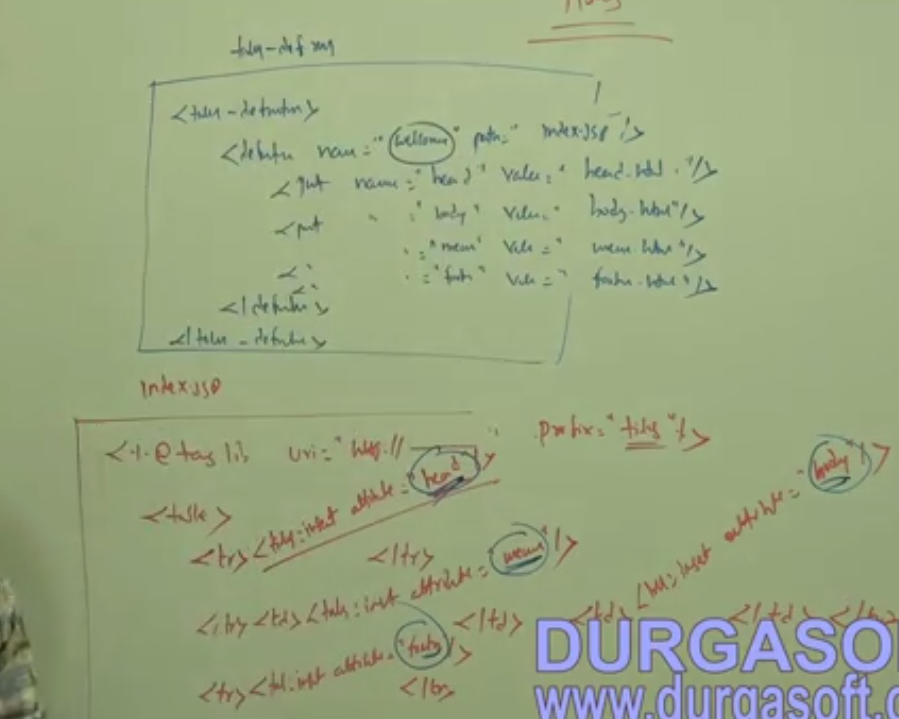 Tiles
tiles-def.xml
<tiles-definition>
<definition name="welcome" path="index.jsp"/>
<put name="head" value="head.html"/>
<put " ="body" value="body.html"/>
" ="menu" value="menu.html"/>
<" " ="footer" value="footer.html"/>
</definition>
</tiles-definition>
index.jsp
<%@ taglib uri="http:// " prefix="tiles"%>
<table>
<tr><tiles:insert attribute="head"/> </tr>
<tr><td><tiles:insert attribute="menu"/> </td> <td> <tiles:insert attribute="body"/> </td></tr>
<tr><tiles:insert attribute="footer"/> </tr>
DURGASO
www.durgasoft.c